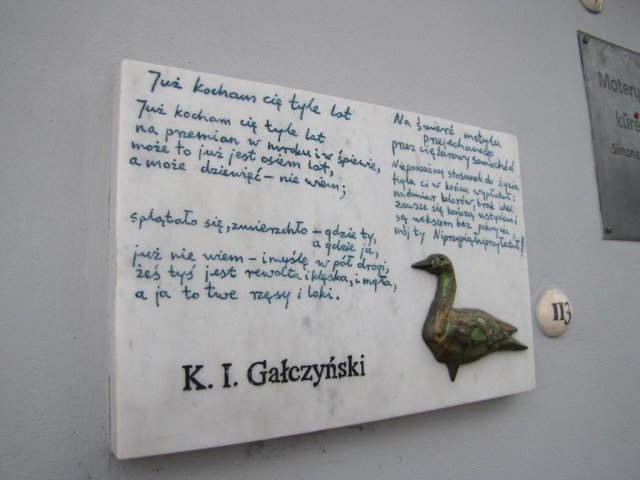 Już kocham cię tyle lat
Już kocham cię tyle lat
na przemian w mroku i w śpiewie,
może to już jest osiem lat,
a może dziewięć – nie wiem;
splątało się, zmierzchło – gdzie ty,
a gdzie ja,
już nie wiem – i myślę w pół drogi,
żeś tyś jest rewolta i klęska, i mgła,
a ja to twe rzęsy i loki.
Na śmierć motyla
przejechanego
przez ciężarowy samochód
Niepoważny stosunek do życia
figla ci w końcu wypłatał:
nadmiar kolorów, brak idei
zawsze się kończą
są wekslem bez pokrycia,
mój ty
K. I. Gałczyński
113
Motery
kūre
Simone